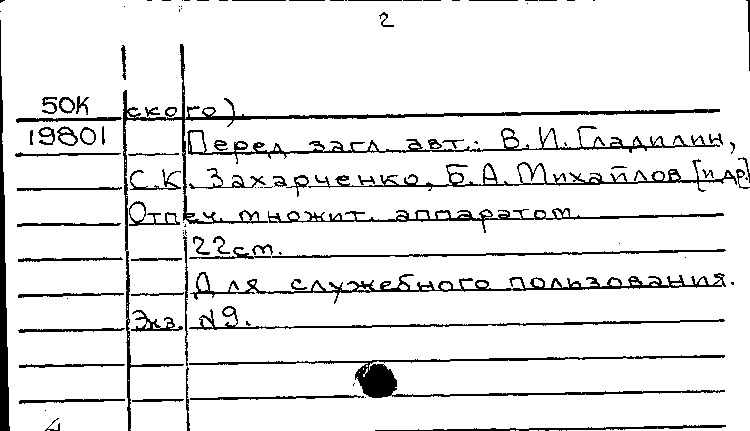 2
50К ского).
19801 Перед загл. авт.: В.И.Гладилин,
С.К. Захарченко, Б.А. Михайлов [и др.]
Отпеч. множит. аппаратом.
22см.
Для служебного пользования.
Экз. N9.